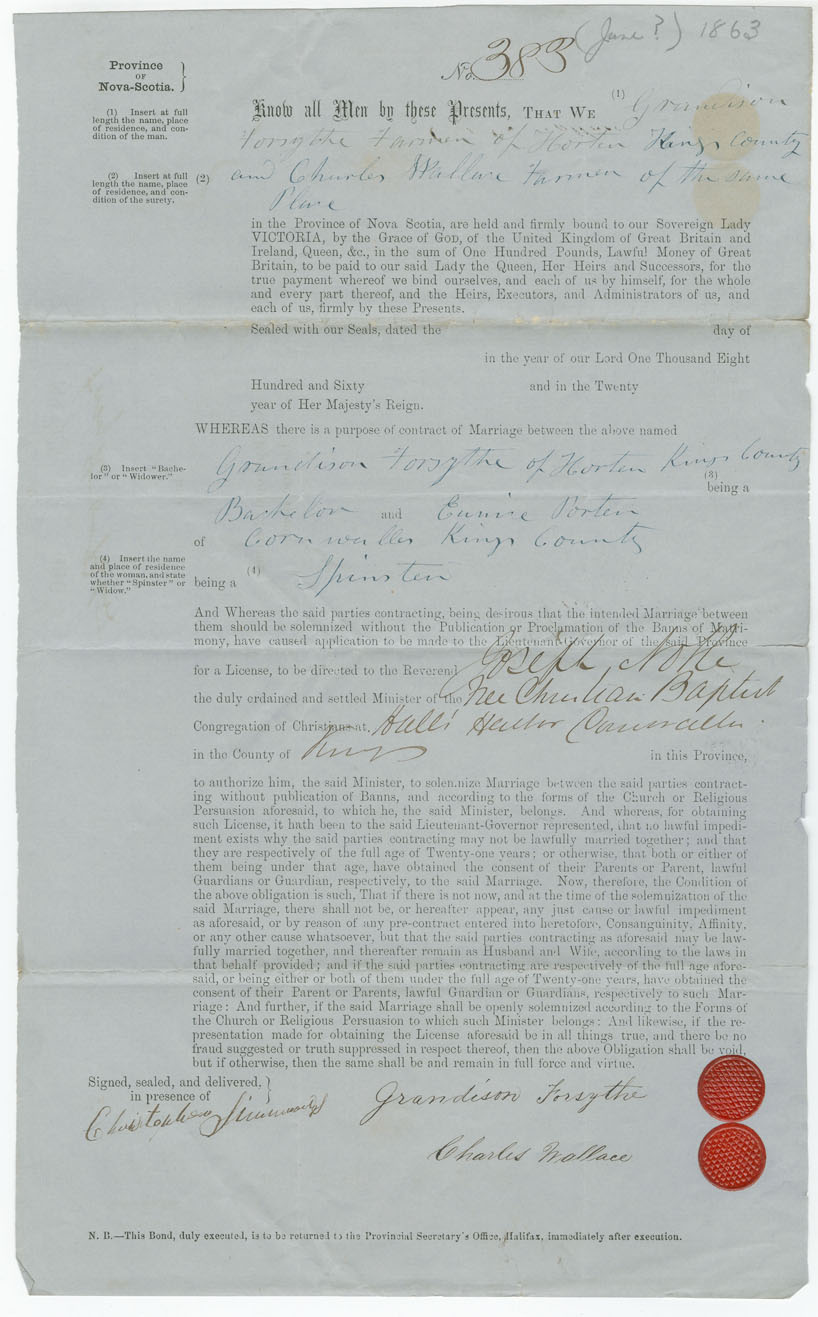 (June?) 1863
No. 383
Province
OF
Nova-Scotia.
(1) Insert at full
length the name, place
of residence, and con-
dition of the man.
Know all Men by these Presents, THAT WE (1) Grandison
Forsythe Farmer of Horton Kings County
(2) Insert at full
length the name, place
of residence, and con-
dition of the surety.
(2) and Charles Wallace Farmer of the same
Place
in the Province of Nova Scotia, are held and firmly bound to our Sovereign Lady
VICTORIA, by the Grace of GOD, of the United Kingdom of Great Britain and
Ireland, Queen, &c., in the sum of One Hundred Pounds, Lawful Money of Great
Britain, to be paid to our said Lady the Queen, Her Heirs and Successors, for the
true payment whereof we bind ourselves, and each of us by himself, for the whole
and every part thereof, and the Heirs, Executors, and Administrators of us, and
each of us, firmly by these Presents.
Sealed with our Seals, dated the day of
in the year of our Lord One Thousand Eight
Hundred and Sixty and in the Twenty
year of Her Majesty's Reign.
WHEREAS there is a purpose of contract of Marriage between the above named
Grandison Forsythe of Horton Kings County
(3) Insert "Bache-
lor" or "Widower."
(3)
being a
Bachelor and Eunice Porter
of Cornwallis Kings County
(4) Insert the name
and place of residence
of the woman, and state
whether "Spinster" or
"Widow."
being a (4) Spinster
And Whereas the said parties contracting, being desirous that the intended Marriage between
them should be solemnized without the Publication or Proclamation of the Banns of Matri-
mony, have caused application to be made to the Lieutenant-Governor of the said Province
for a License, to be directed to the Reverend Joseph Noble
the duly ordained and settled Minister of the Free Christian Baptist
Congregation of Christians at Hall's Harbor Cornwallis.
in the County of Kings in this Province,
to authorize him, the said Minister, to solemnize Marriage between the said parties contract-
ing without publication of Banns, and according to the forms of the Church or Religious
Persuasion aforesaid, to which he, the said Minister, belongs. And whereas, for obtaining
such License, it hath been to the said Lieutenant-Governor represented, that no lawful impedi-
ment exists why the said parties contracting may not be lawfully married together; and that
they are respectively of the full age of Twenty-one years; or otherwise, that both or either of
them being under that age, have obtained the consent of their Parents or Parent, lawful
Guardians or Guardian, respectively, to the said Marriage. Now, therefore, the Condition of
the above obligation is such, That if there is not now, and at the time of the solemnization of the
said Marriage, there shall not be, or hereafter appear, any just cause or lawful impediment
as aforesaid, or by reason of any pre-contract entered into heretofore, Consanguinity, Affinity,
or any other cause whatsoever, but that the said parties contracting as aforesaid may be law-
fully married together, and thereafter remain as Husband and Wife, according to the laws in
that behalf provided; and if the said parties contracting are respectively of the full age afore-
said, or being either or both of them under the full age of Twenty-one years, have obtained the
consent of their Parent or Parents, lawful Guardian or Guardians, respectively to such Mar-
riage: And further, if the said Marriage shall be openly solemnized according to the Forms of
the Church or Religious Persuasion to which such Minister belongs: And likewise, if the re-
presentation made for obtaining the License aforesaid be in all things true, and there be no
fraud suggested or truth suppressed in respect thereof, then the above Obligation shall be void,
but if otherwise, then the same shall be and remain in full force and virtue.
Signed, sealed, and delivered,
in presence of
Christopher Simmonds
Grandison Forsythe
Charles Wallace
N. B.—This Bond, duly executed, is to be returned to the Provincial Secretary's Office, Halifax, immediately after execution.